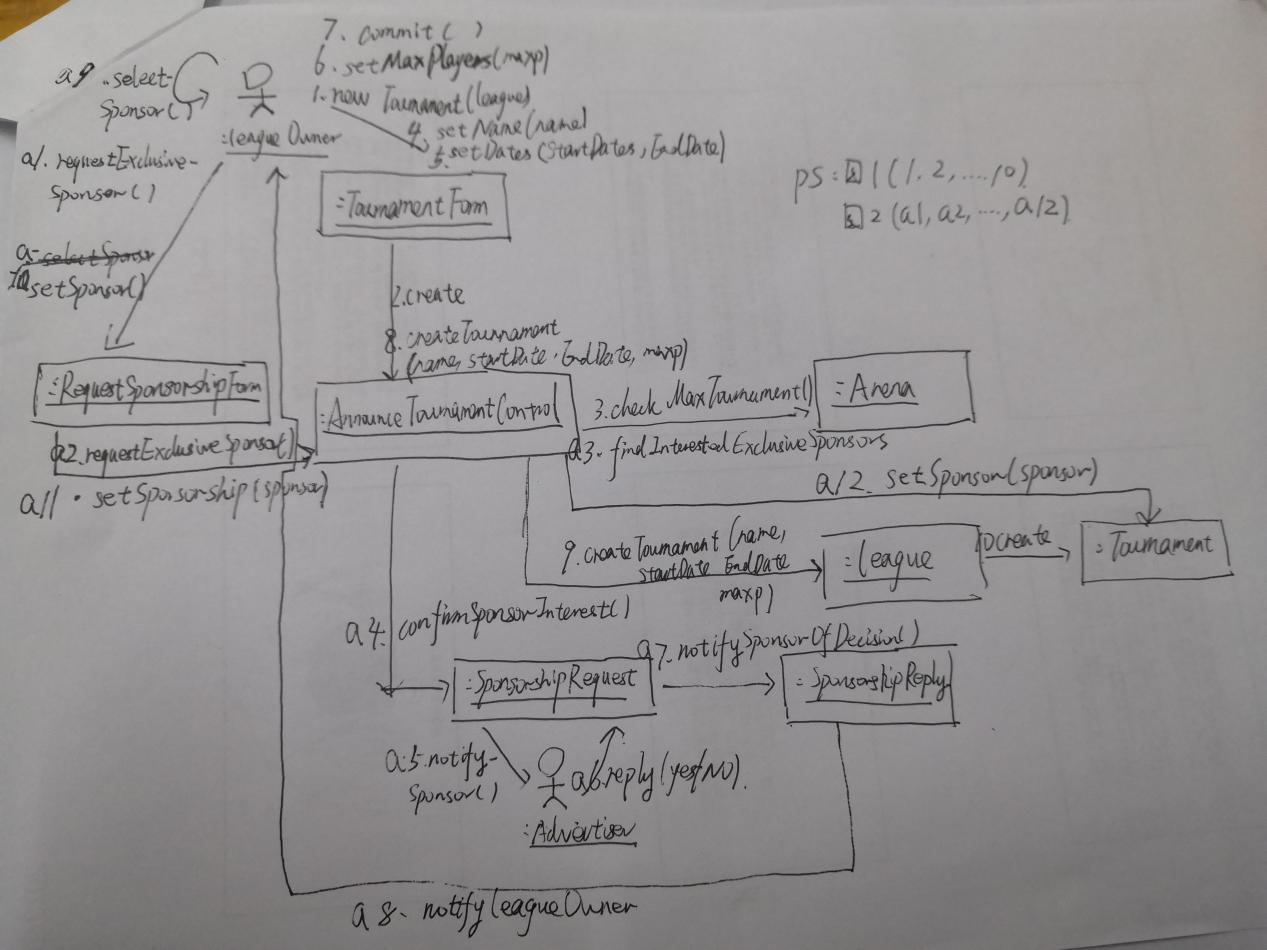 7. commit( )
6. setMaxPlayers(maxp)
1. new Tournament(league)
4. setName(name)
5. setDates(StartDates, EndDate)
a9. select-
Sponsor()
:leagueOwner
a1. requestExclusive-
Sponsor()
ps: 图1(1.2,....10)
图2(a1, a2, ..., a12)
:TournamentForm
setSponsor()
2.create
8. createTournament
(name, startDate, EndDate, maxp)
:RequestSponsorshipForm
:AnnounceTournamentControl
3. checkMaxTournament()
:Arena
a2. requestExclusiveSponsor()
a3. findInterestedExclusiveSponsors
a11. setSporsorship(sponsor)
a12. setSponsor(sponsor)
9. createTournament (name,
startDate EndDate
maxp)
:league
10create
:Tournament
a4. confirmSponsorInterest()
a7. notifySponsorOfDecision()
:SponsorshipRequest
:SponsorshipReply
a.5.notify-
Sponsor()
a.6.reply(yes/NO).
:Advertiser
a8. notifyleagueOwner